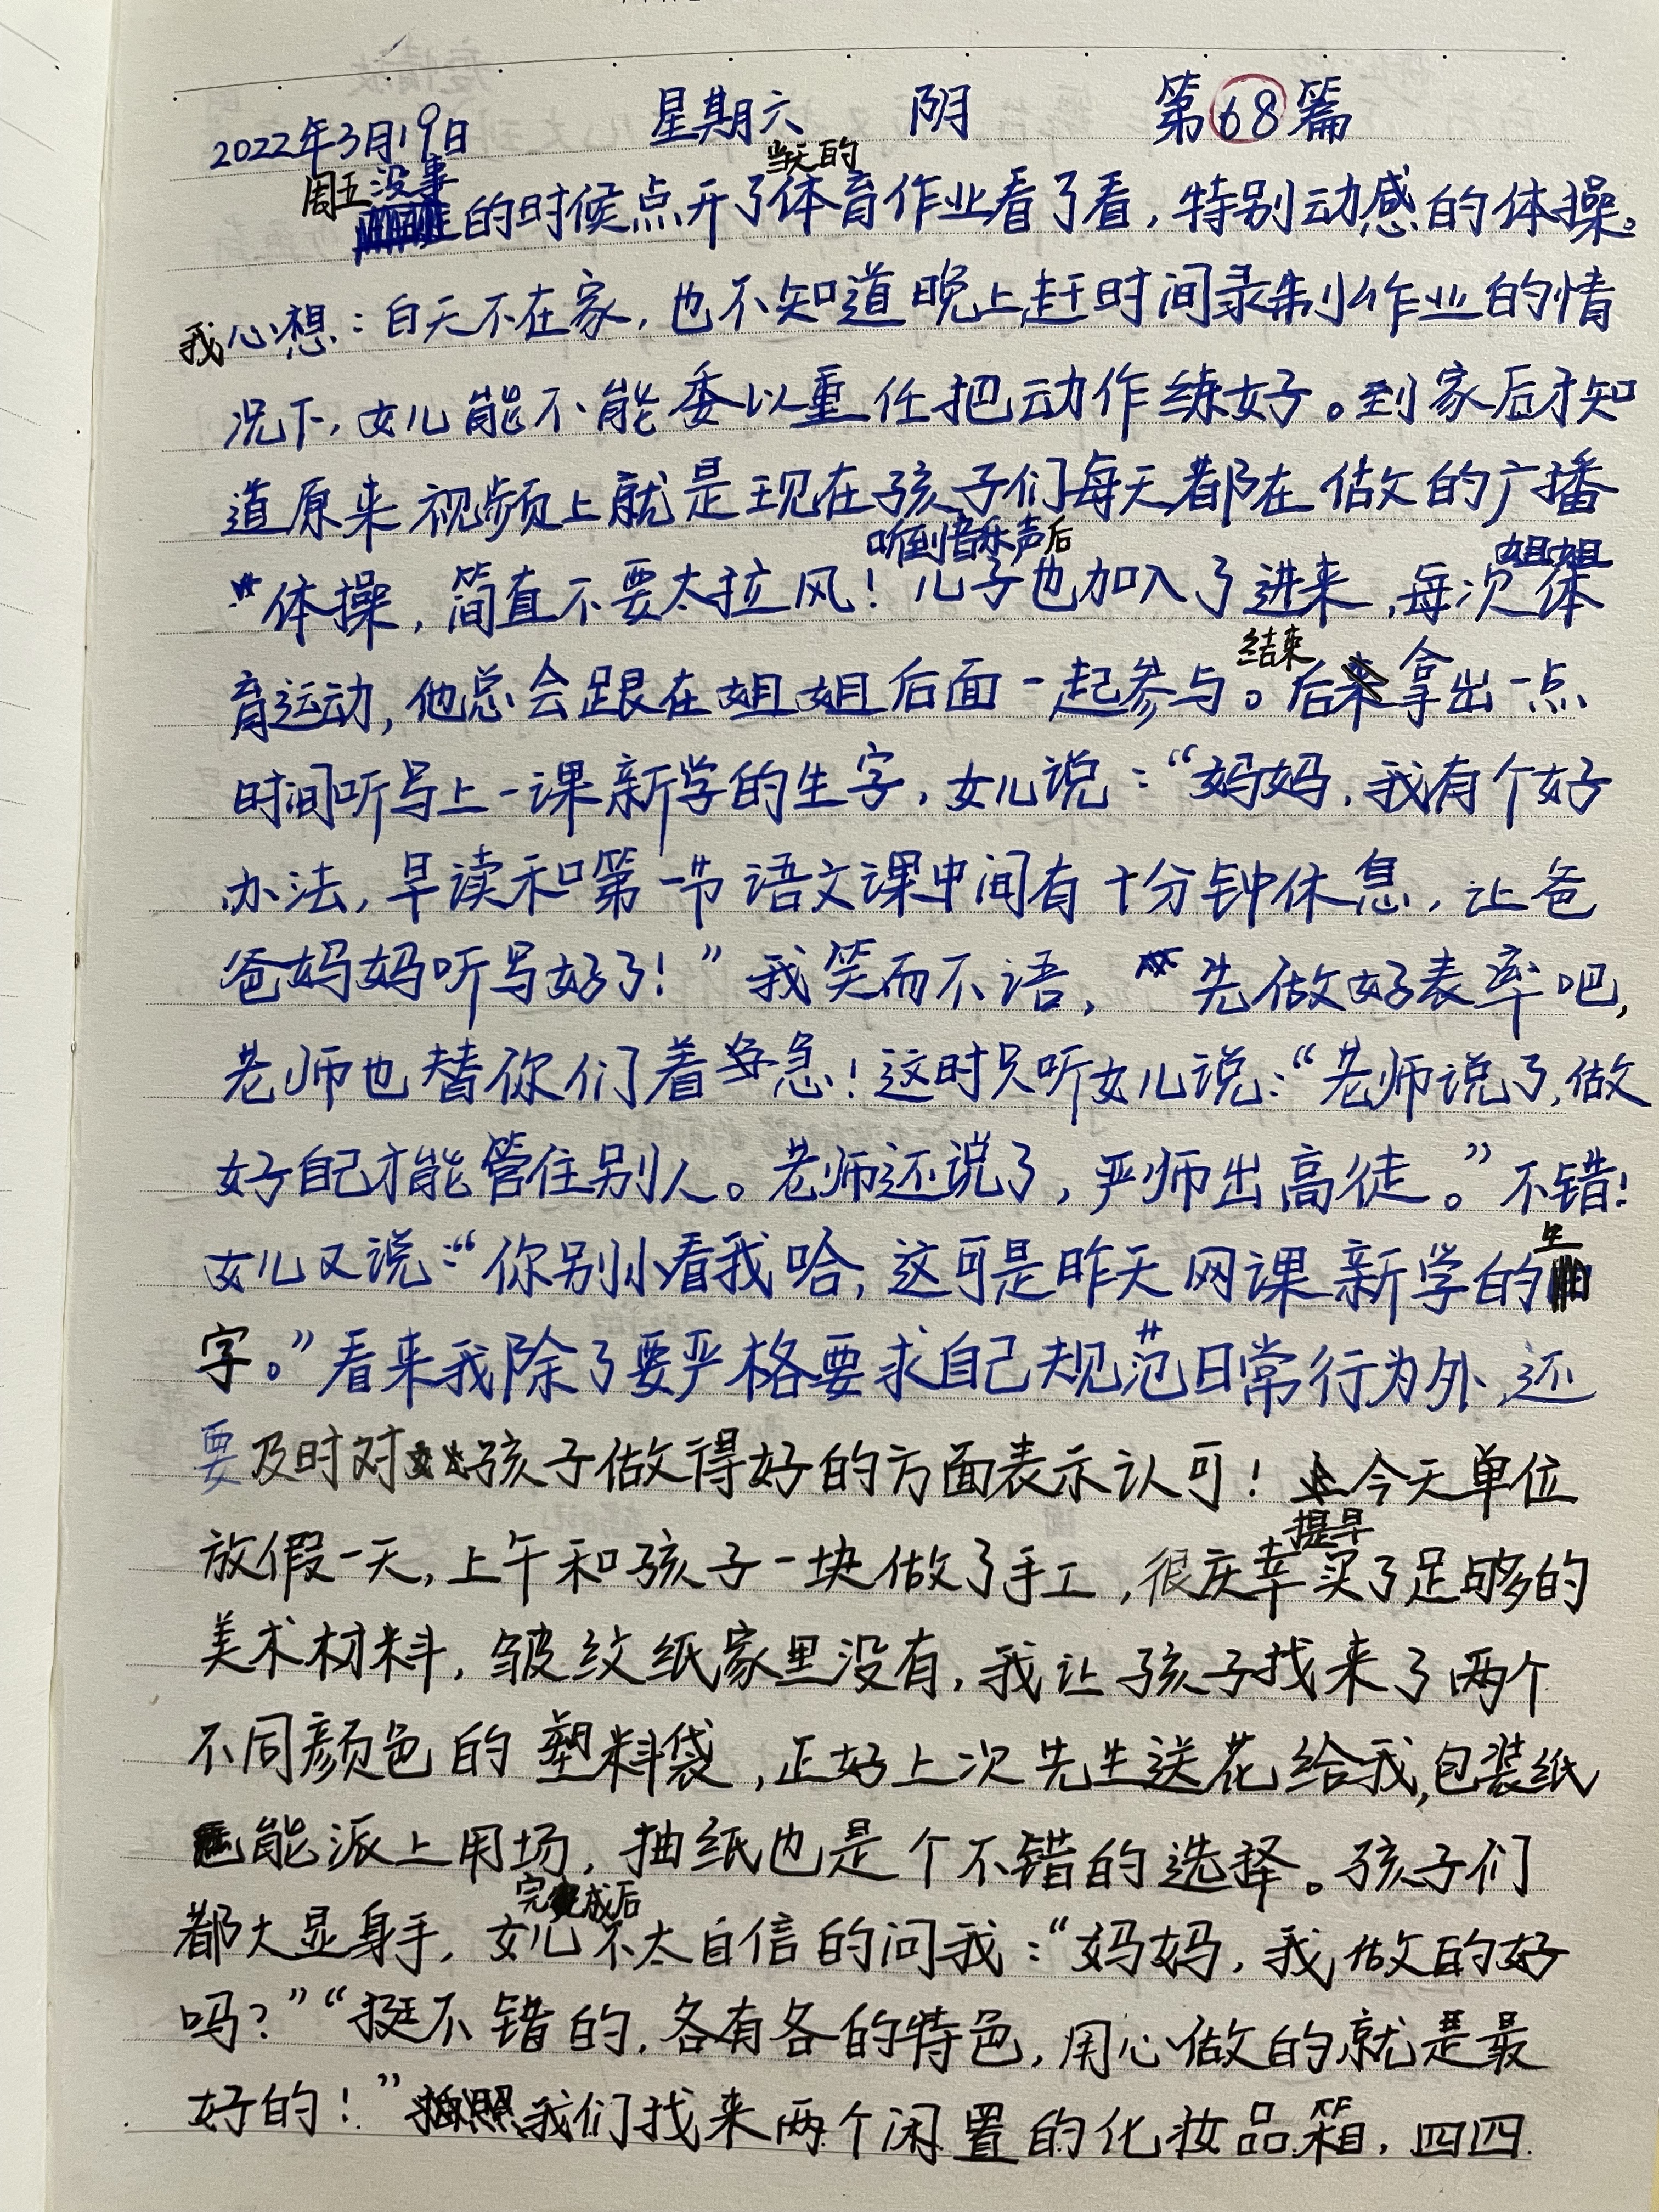 2022年3月19日 星期六 阴 第68篇
周五没事的时候点开了当天的体育作业看了看,特别动感的体操。
我心想:白天不在家,也不知道晚上赶时间录制作业的情
况下,女儿能不能委以重任把动作练好。到家后才知
道原来视频上就是现在孩子们每天都在做的广播
体操,简直不要太拉风!听到音乐声后儿子也加入了进来,每次姐姐体
育运动,他总会跟在姐姐后面一起参与。结束后拿出一点
时间听写上一课新学的生字,女儿说:“妈妈,我有个好
办法,早读和第一节语文课中间有十分钟休息,让爸
爸妈妈听写好了!”我笑而不语,先做好表率吧,
老师也替你们着急!这时只听女儿说:“老师说了,做
好自己才能管住别人。老师还说了,严师出高徒。”不错!
女儿又说:“你别小看我哈,这可是昨天网课新学的生
字。”看来我除了要严格要求自己规范日常行为外,还
要及时对孩子做得好的方面表示认可!今天单位
放假一天,上午和孩子一块做了手工,很庆幸提早买了足够的
美术材料,皱纹纸家里没有,我让孩子找来了两个
不同颜色的塑料袋,正好上次先生送花给我,包装纸
能派上用场,抽纸也是个不错的选择。孩子们
都大显身手,女儿完成后不太自信的问我:“妈妈,我做的好
吗?”“挺不错的,各有各的特色,用心做的就是最
好的!”我们找来两个闲置的化妆品箱,四四